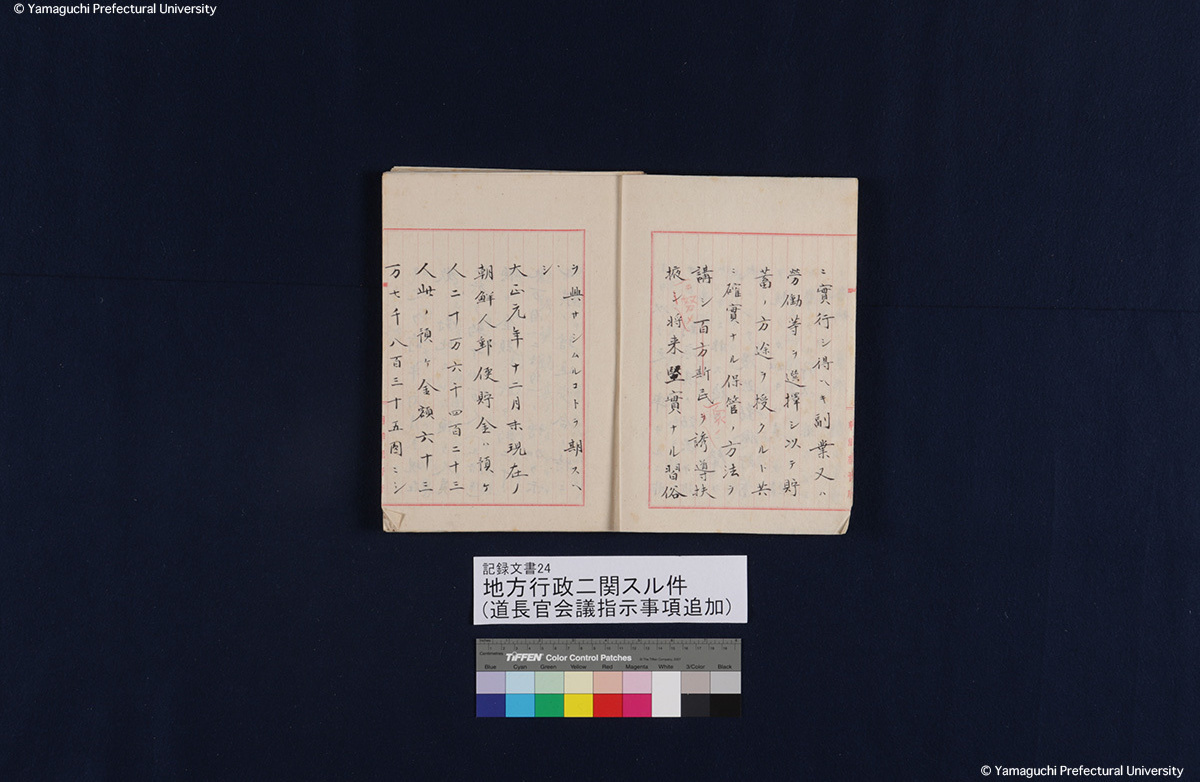 © Yamaguchi Prefectural University
ニ實行シ得ヘキ副業又ハ
勞働等ヲ選擇シ以テ貯
蓄ノ方途ヲ授クルト共
ニ確實ナル保管ノ方法ヲ
講シ百方斯民ヲ誘導扶
掖シ将来堅實ナル習俗
ヲ興サシムルコトヲ期スヘ
シ
大正元年十二月末現在ノ
朝鮮人郵便貯金ハ預ケ
人二十万六千四百二十三
人此ノ預ケ金額六十三
万七千八百三十五圓ニシ
記録文書24
地方行政ニ関スル件
(道長官会議指示事項追加)
Centimetres
TIFFEN Color Control Patches
Blue Cyan Green Yellow Red Magenta White 3/Color Black
© Yamaguchi Prefectural University